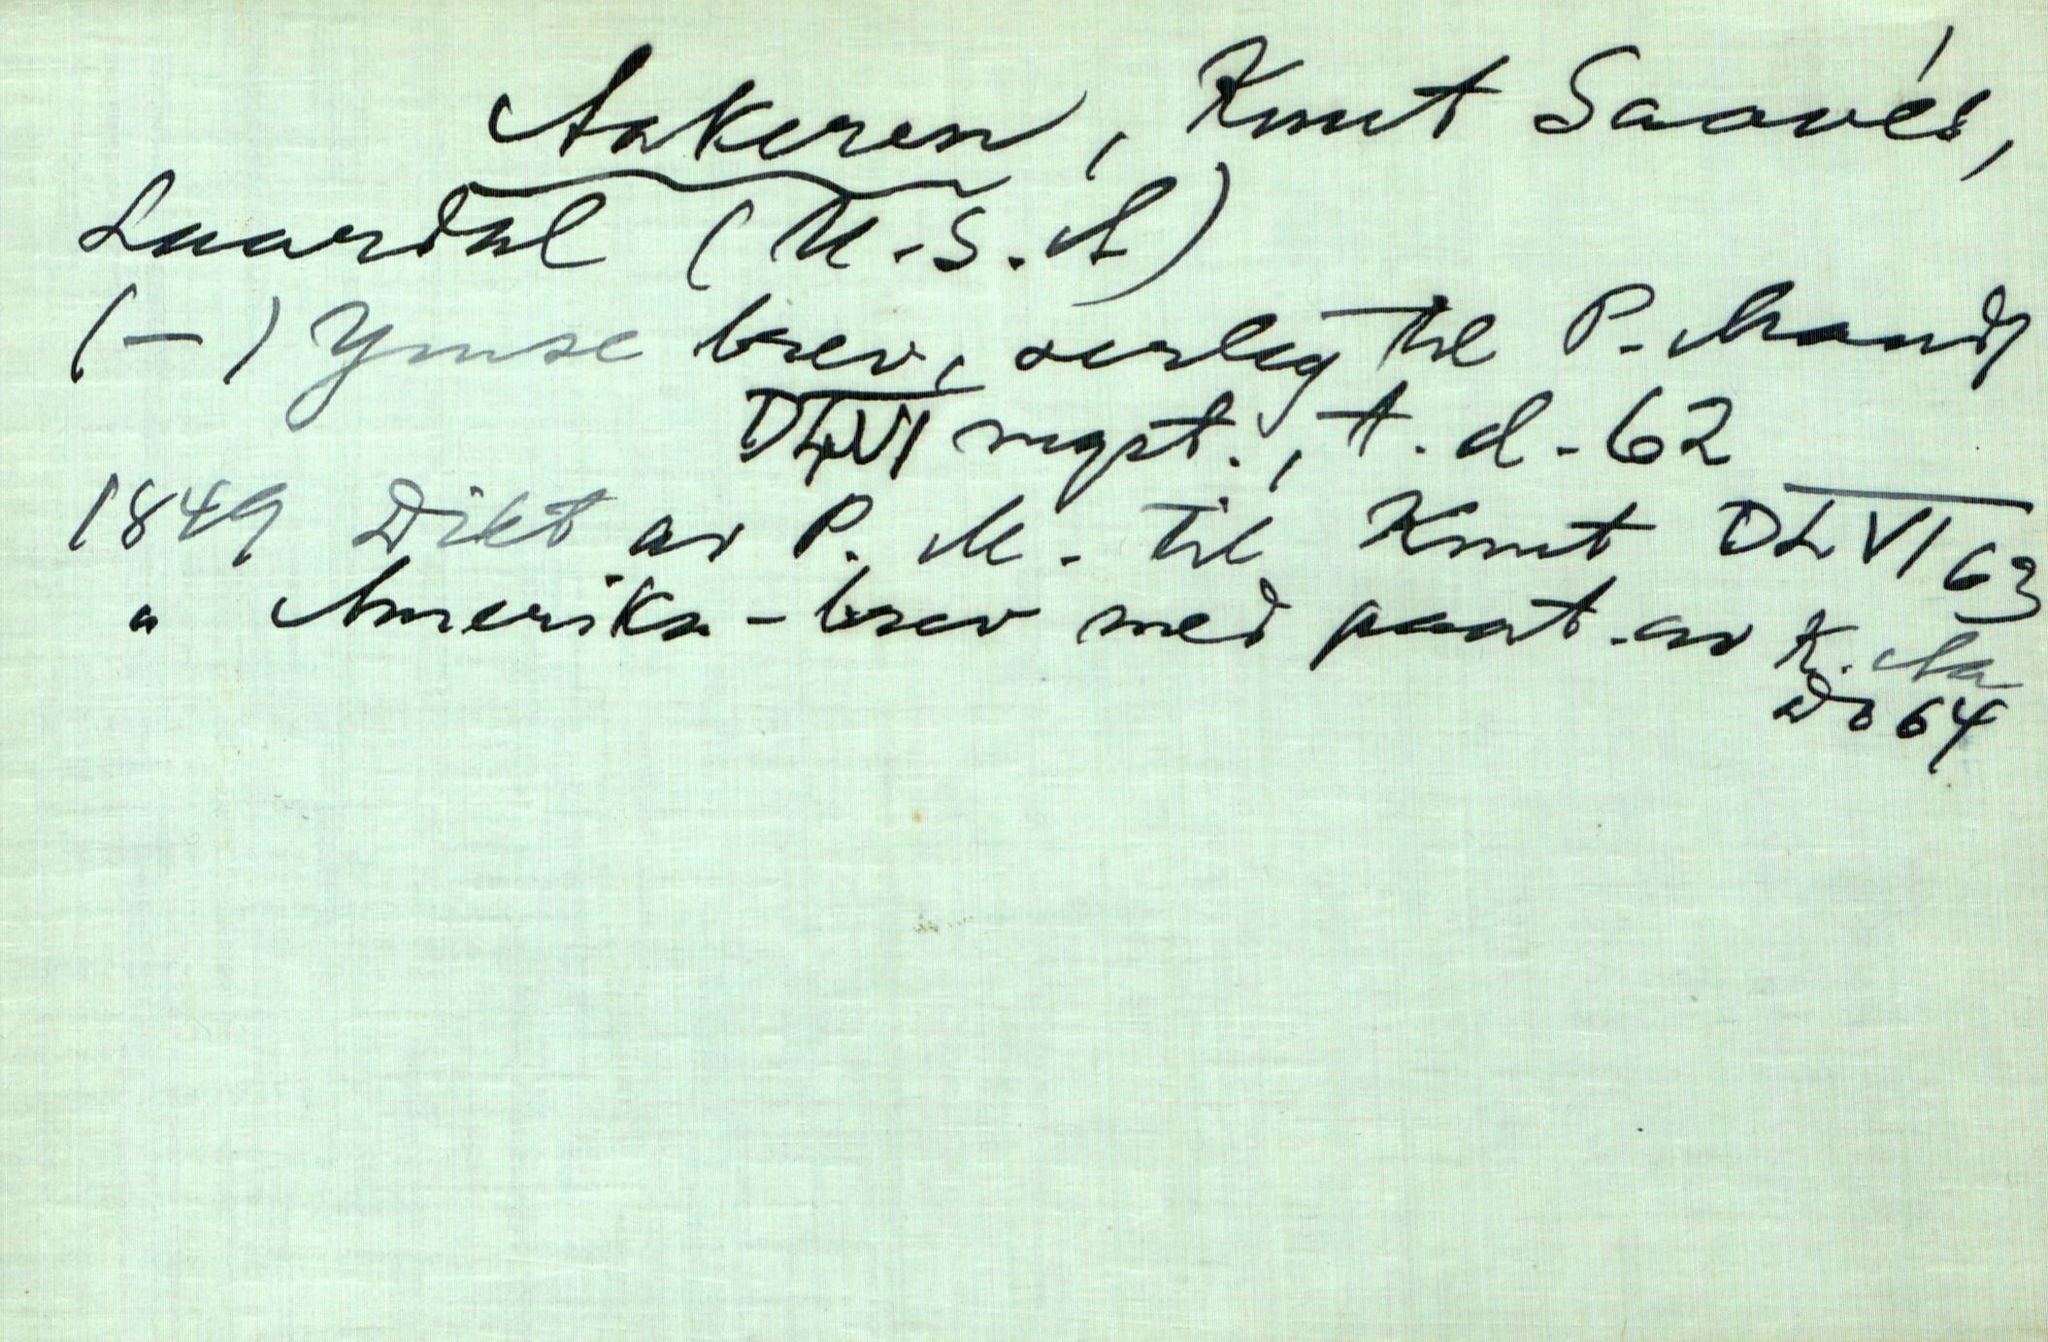 Aakeren, Knut Saavés,
Laardal (U.S.A)
(-) Ymse brev, serleg til P. Mandt
DLVI mgst., t.d. 62
1849 Dikt av P. M. til Knut DLVI 63
" Amerika-brev med paat. av K. Aa
Do 64